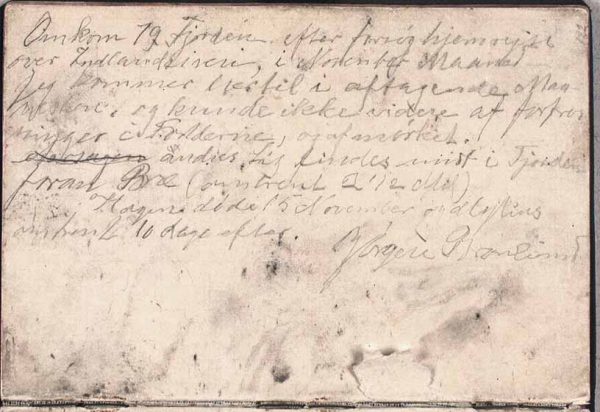 Omkom 79 Fjorden efter forsøg hjemrejse
over Indlandsisen, i November Maaned
Jeg kommer hertil i aftagende Maa-
neskin, og kunde ikke videre af forfros-
ninger i Fødderne, og af mørket.
andres Lig findes midt i Fjorden
foran Bræ (omtrent 2 1/2 Mil)
Hagen døde 15 November og Mylius
omtrent 10 dage efter.
Jørgen Brønlund